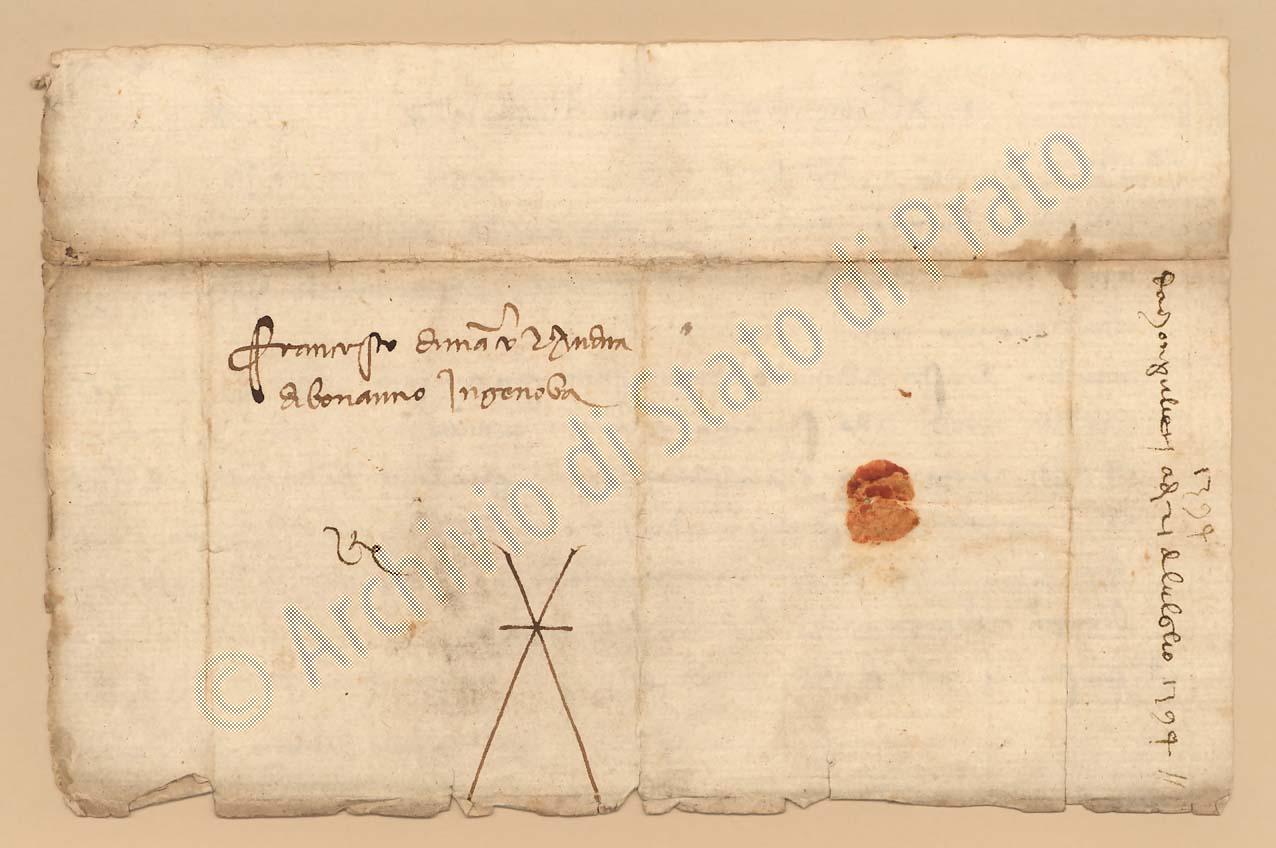 Francescho di marcho e Andrea
di bonanno In genova
da monpulier adi 21 di luglio 1394
1394
© Archivio di Stato di Prato